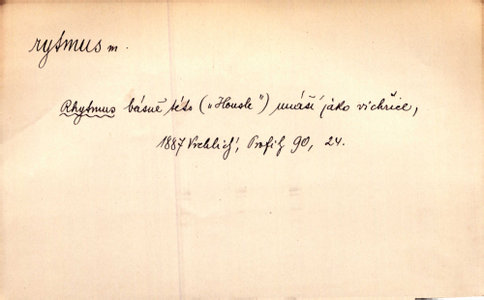 rytmus m.
Rhytmus básně této („Housle“) unáší jako vichřice,
1887 Vrchlický, Profily 90, 24.